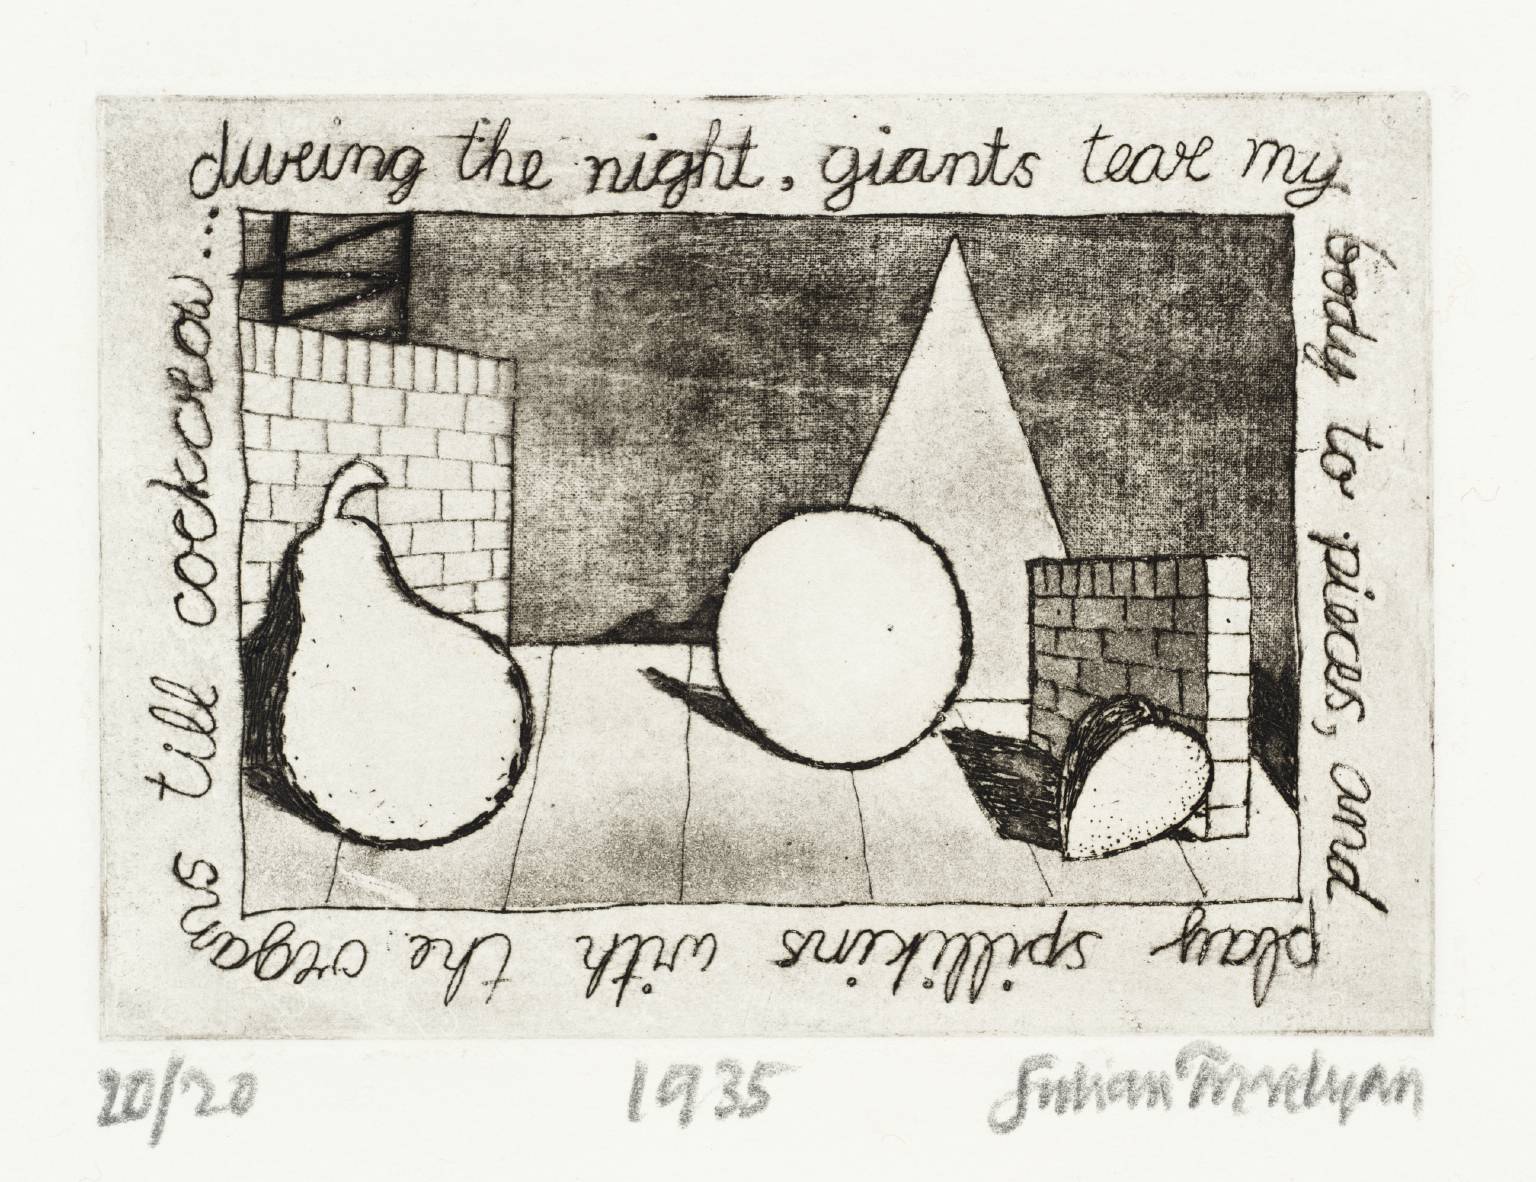 during the night, giants tear my
body to pieces, and
play spillikins with the organs
till cockcrow...
20/20
1935
Julian Trevelyan